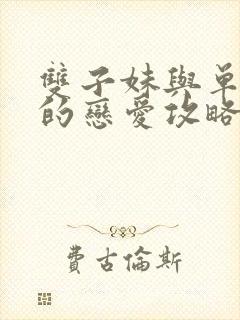 雙子妹與單
的戀愛攻略
費古倫斯